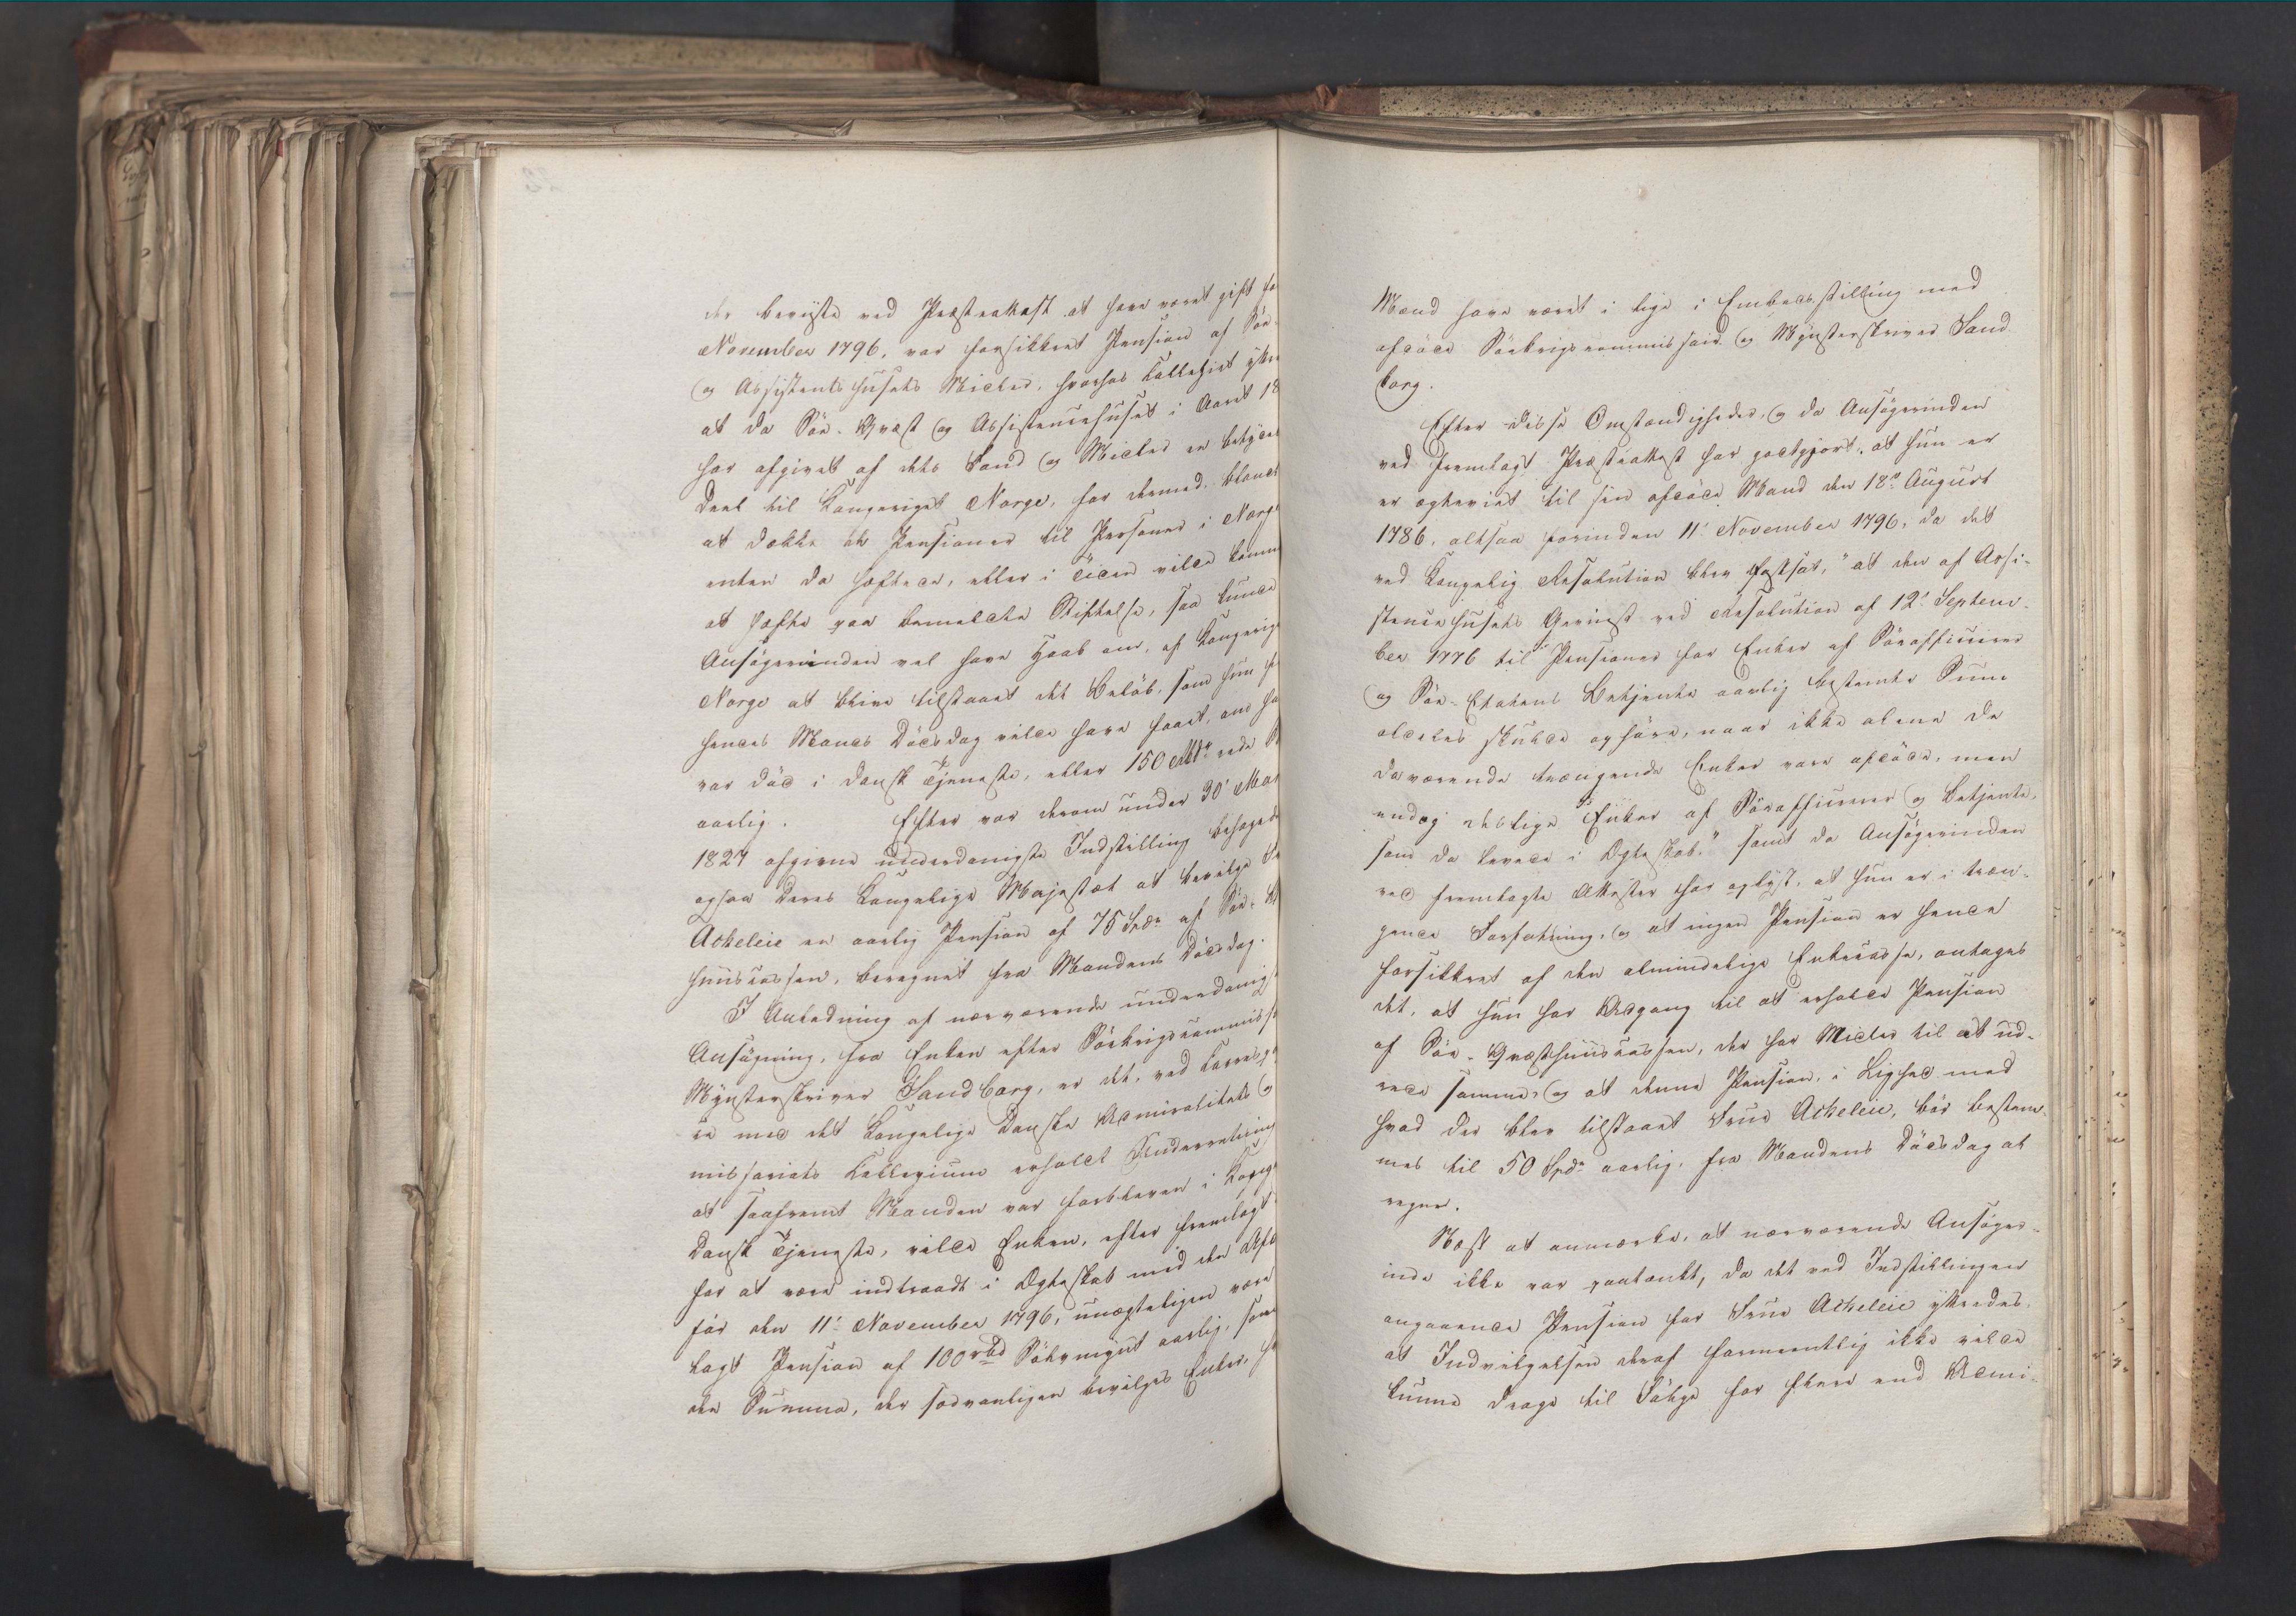 der beviiste ved Præsteattest at have været gift fø
November 1796, var forsikkret Pension af Söe-
og Assistentshusets Midler, hvorhos Collegiet yttre
at da Söe-Qvæst og Assistencehuset i Aaret 18
har afgivet af dets Fond og Midler en betyde
Deel til Kongeriget Norge, for dermed blandt
at dække de Pensioner til Personer i Norge
enten da hæftede, eller i Tiden vilde komm
at hæfte paa bemeldte Stiftelse, saa kunde
Ansögerinden vel have Haab om, af Kongerig
Norge at blive tilstaaet det Belöb, som hun
hendes Mands Dödsdag vilde have faaet, om ha
var död i dansk Tjeneste, eller 150 Rbdr rede
aarlig. Efter vor derom under 30' Mar
1827 afgivne underdanigste Indstilling behagede
ogsaa Deres Kongelige Majestæt at bevilge Fr
Acheleie en aarlig Pension af 75 Spdr af Söe-
huuscassen, beregnet fra Mandens Dödsdag.
I Anledning af nærværende underdanig
Ansögning, fra Enken efter Söekrigscommiss
Mynsterskriver Sandborg, er det, ved Corresp
ce med det Kongelige Danske Admiralitets og
missariats Collegium erholdt Underretning
at saafremt Manden var forbleven i Kong
Dansk Tjeneste, vilde Enken, efter fremlagt
for at være indtraadt i Ægteskab med den Afd
för den 11' November 1796, unægteligen være
lagt Pension af 100 rbd Sölvmynt aarlig, som
den Summa, der sædvanligen bevilges Enker, h
Mænd have været i lige i Embedsstilling med
afdöde Söekrigscommissair og Mynsterskriver Sand
borg.
Efter disse Omstændigheder, og da Ansögerinden
ved fremlagt Præsteattest har godtgjort, at hun er
er ægteviet til sin afdöde Mand den 18de August
1786, altsaa forinden 11' November 1796, da det
ved Kongelig Resolution blev fastsat, "at den af Assi-
stencehusets Gevinst ved Resolution af 12' Septem-
ber 1776 til Pensioner for Enker af Söeofficierer
og Söe-Etatens Betjente aarlig bestemte Sum
aldeles skulde ophöre, naar ikke alene de
daværende trængende Enker vare afdöde, men
endog deslige Enker af Söeofficierer og Betjente,
som da levede i Ægteskab." samt da Ansögerinden
ved fremlagte Attester har oplyst, at hun er i træn-
gende Forfatning, og at ingen Pension er hende
forsikkret af den almindelige Enkecasse, antages
det, at hun har Adgang til at erholde Pension
af Söe-Qvæsthuuscassen, der har Midler til at ud-
rede samme, og at denne Pension, i Lighed med
hvad der blev tilstaaet Frue Acheleie, bör bestem-
mes til 50 Spdr aarlig, fra Mandens Dödsdag at
regne.
Næst at anmærke, at nærværende Ansöger-
inde ikke var paatænkt, da det ved Indstillingen
angaaende Pension for Frue Acheleie yttredes,
at Indvilgelsen deraf formeentlig ikke vilde
kunne drage til Fölge for flere end Admi-